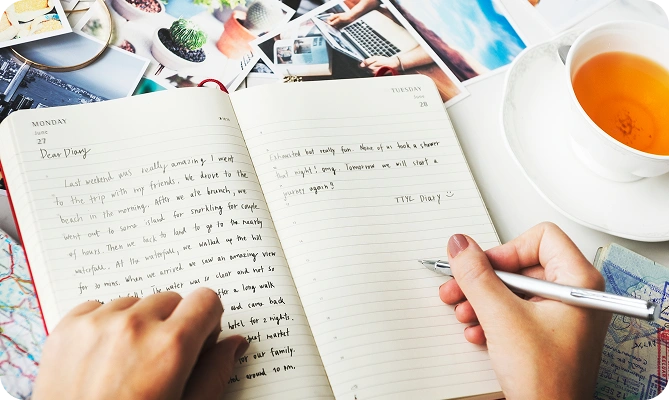 MONDAY
June
27
Dear Diary
Last weekend was really amazing. I went
to the trip with my friends. We drove to the
beach in the morning. After we ate brunch, we
went out to some island for snorkling for couple
of hours. Then we back to land to go to the nearby
waterfall. At the waterfall, we walked up the hill
for 30 mins. When we arrived saw an amazing view
The water was so clear and not so
after a long walk
and came back
hotel for 2 nights.
market
for our family.
and around 10 pm.
TUESDAY
June
28
Exhausted but really fun. None of us took a shower
that night! omg. Tomorrow we will start a
journey again!!
TTYL Diary